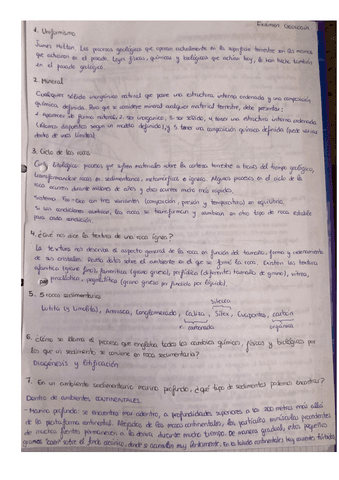 Examen Geología
1. Uniformismo
James Hutton. Los procesos geológicos que operan actualmente en la superficie terrestre son los mismos
que actuaron en el pasado. Leyes físicas, químicas y biológicas que actúan hoy, lo han hecho también
en el pasado geológico.
2. Mineral
Cualquier sólido inorgánico natural que posee una estructura interna ordenada y una composición
química definida. Para que se considere mineral cualquier material terrestre, debe presentar:
1. Aparecer de forma natural, 2. Ser inorgánico, 3. Ser sólido, 4. tener una estructura interna ordenada
(átomos dispuestos según un modelo definido), y 5. tener una composición química definida (puede variar
dentro de unos límites).
3. Ciclo de las rocas
Conj. litológicos: procesos que sufren materiales sobre la corteza terrestre a través del tiempo geológico,
transformándose rocas en sedimentarias, metamórficas e ígneas. Algunos procesos en el ciclo de la
roca ocurren durante millones de años y otros ocurren mucho más rápidos.
Sistema con tres variantes (composición, presión y temperatura) en equilibrio,
si sus condiciones cambian, las rocas se transforman y cambian en otro tipo de roca estable
para cada condición.
4. ¿Qué nos dice la textura de una roca ígnea?
La textura nos describe el aspecto general de la roca en función del tamaño, forma y ordenamiento
de sus cristales. Revela datos sobre el ambiente en el que se formó la roca. Existen las texturas
afanítica (grano fino), fanerítica (grano grueso), porfídica (diferentes tamaños de grano), vítrea,
piroclástica, pegmatítica (grano grueso por fundido por líquido).
5. 5 rocas sedimentarias
silícea
Lutita (y limolita), Arenisca, Conglomerado, Caliza, Sílex, Evaporitas, carbón
carbonatada
orgánica
6. ¿Cómo se llama el proceso que engloba todos los cambios químicos, físicos y biológicos por
los que un sedimento se convierte en roca sedimentaria?
Diagénesis y litificación
7. En un ambiente sedimentario marino profundo, ¿qué tipo de sedimentos podemos encontrar?
Dentro de ambientes CONTINENTALES.
- Marino profundo: se encuentra mar adentro, a profundidades superiores a los 200 metros más allá
de la plataforma continental. Alejadas de las masas continentales, las partículas minúsculas procedentes
de muchas fuentes permanecen a la deriva durante mucho tiempo. De manera gradual, estos pequeños
granos "caen" sobre el fondo oceánico, donde se acumulan muy lentamente. En el talud continental hay corrientes turbidez